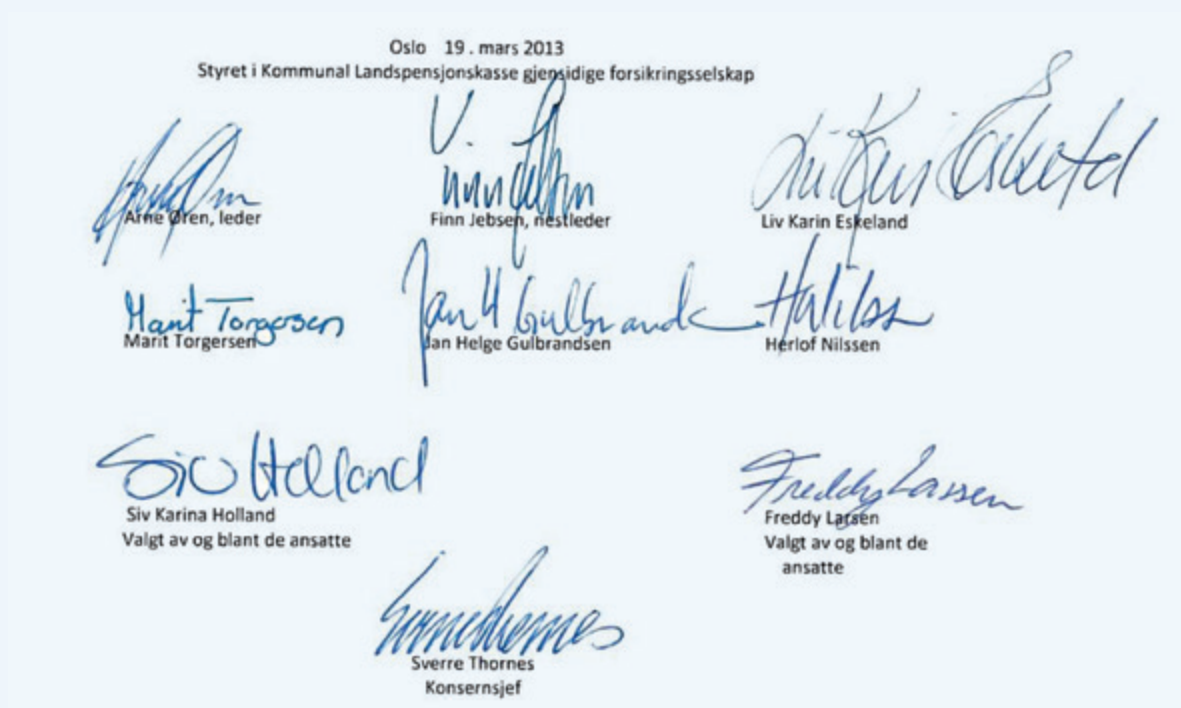 Oslo 19 . mars 2013
Styret i Kommunal Landspensjonskasse gjensidige forsikringsselskap
Arne Øren, leder
Finn Jebsen, nestleder
Liv Karin Eskeland
Marit Torgersen
Jan H Gulbrands
Marit Torgersen
Jan Helge Gulbrandsen
Herlof Nilssen
Siv Holland
Freddy Larsen
Siv Karina Holland
Valgt av og blant de ansatte
Freddy Larsen
Valgt av og blant de
ansatte
Sverre Thornes
Konsernsjef